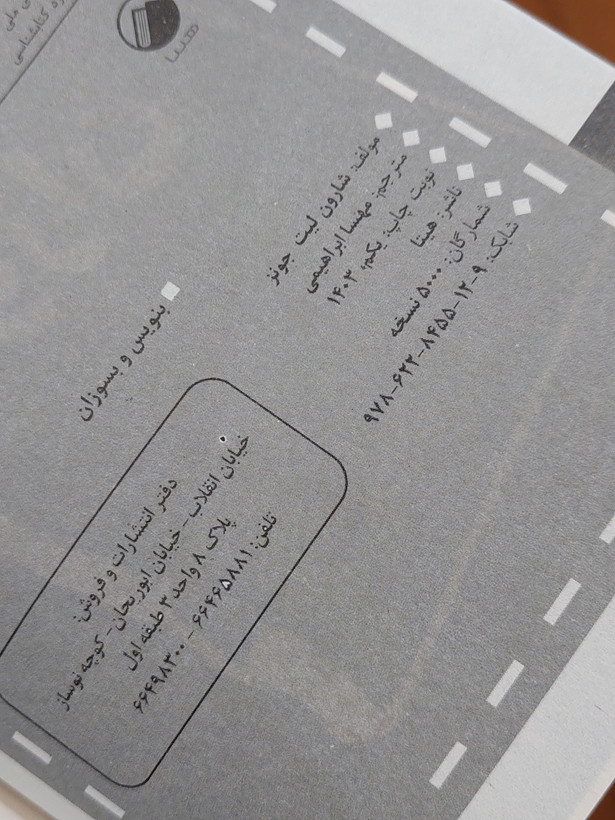 بنویس و بسوزان
مولف: شارون لیت جونز
مترجم: مهنسا ابراهیمی
نوبت چاپ: یکم، ۱۴۰۳
ناشر: هینا
شمارگان: ۵۰۰۰ نسخه
شابک: ۹-۱۲-۸۴۵۵-۶۲۲-۹۷۸
دفتر انتشارات و فروش:
خیابان انقلاب - خیابان ابوریحان - کوچه نوساز
پلاک ۸ واحد ۳ طبقه اول
تلفن: ۶۶۴۶۵۸۸۱ - ۶۶۴۹۸۳۰۰